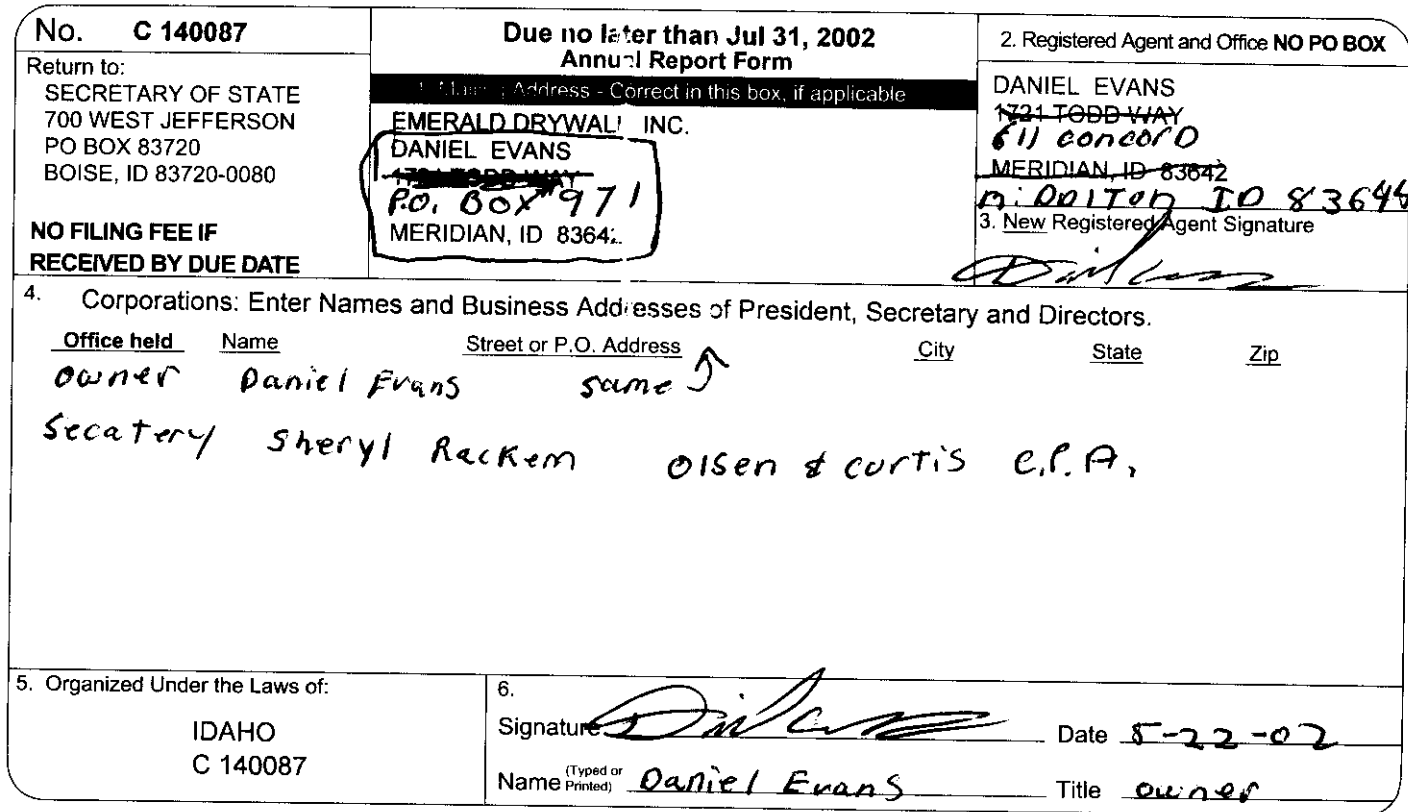 No. C 140087
Return to:
SECRETARY OF STATE
700 WEST JEFFERSON
PO BOX 83720
BOISE, ID 83720-0080
NO FILING FEE IF
RECEIVED BY DUE DATE
Due no later than Jul 31, 2002
Annual Report Form
1. Mailing Address - Correct in this box, if applicable
EMERALD DRYWALL INC.
DANIEL EVANS
1721 TODD WAY
P.O. BOX #971
MERIDIAN, ID 83642
2. Registered Agent and Office NO PO BOX
DANIEL EVANS
1721 TODD WAY
611 concorD
MERIDIAN, ID 83642
MiDDlTon ID 83644
3. New Registered Agent Signature
4. Corporations: Enter Names and Business Addresses of President, Secretary and Directors.
Office held Name Street or P.O. Address City State Zip
owner Daniel Evans same
Secatery Sheryl Rackem Olsen & curtis C.P.A.
5. Organized Under the Laws of:
IDAHO
C 140087
6.
Signature Date 5-22-02
Name (Typed or Printed) Daniel Evans Title owner